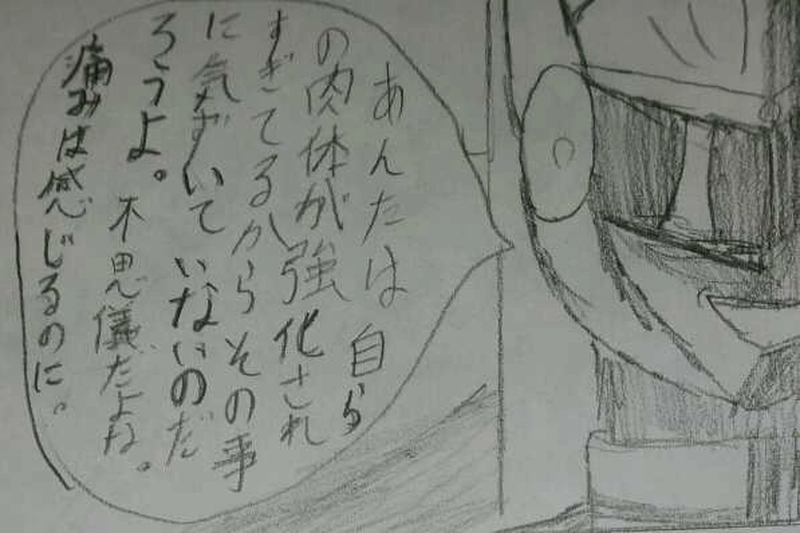 あんたは自ら
の肉体が強化され
すぎてるからその事
に気ずいていないのだ
ろうよ。不思儀だよな。
痛みは感じるのに。